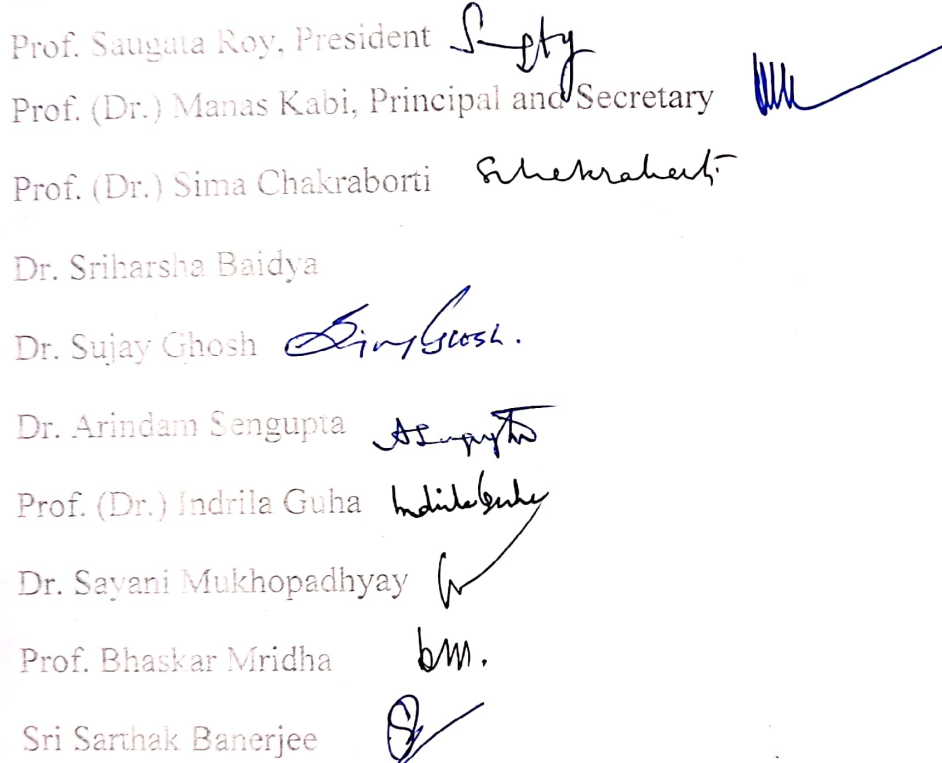 Prof. Saugata Roy, President
Prof. (Dr.) Manas Kabi, Principal and Secretary
Prof. (Dr.) Sima Chakraborti
Dr. Sriharsha Baidya
Dr. Sujay Ghosh
Dr. Arindam Sengupta
Prof. (Dr.) Indrila Guha Indrila Guha
Dr. Sayani Mukhopadhyay
Prof. Bhaskar Mridha bm.
Sri Sarthak Banerjee